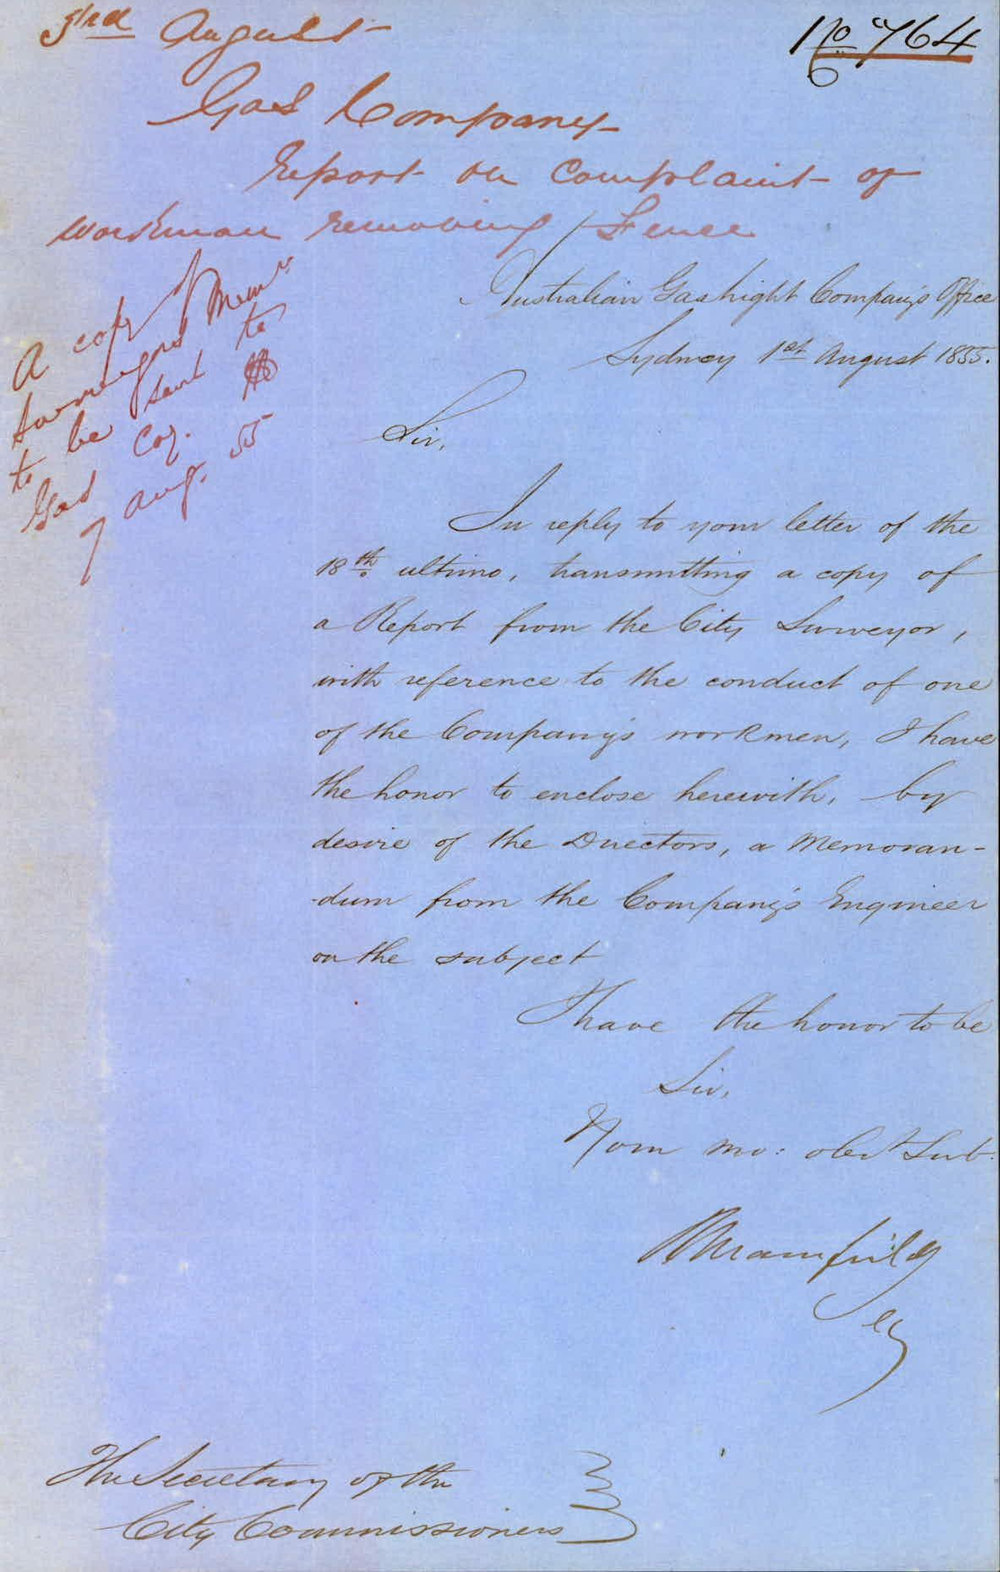 3rd August
No 764
Gas Company
Report on complaint of
workman removing Fence
Australian Gaslight Company's Office
Sydney 1st August 1855.
A copy of
Memn
to be sent to
Gas Coy.
7 Aug. 55
Sir,
In reply to your letter of the
18th ultimo, transmitting a copy of
a Report from the City Surveyor,
with reference to the conduct of one
of the Company's workmen, I have
the honor to enclose herewith, by
desire of the Directors, a Memoran-
-dum from the Company's Engineer
on the subject
I have the honor to be
Sir,
Your mo: obdt Servt.
RMansfield
Secy
The Secretary of the
City Commissioners